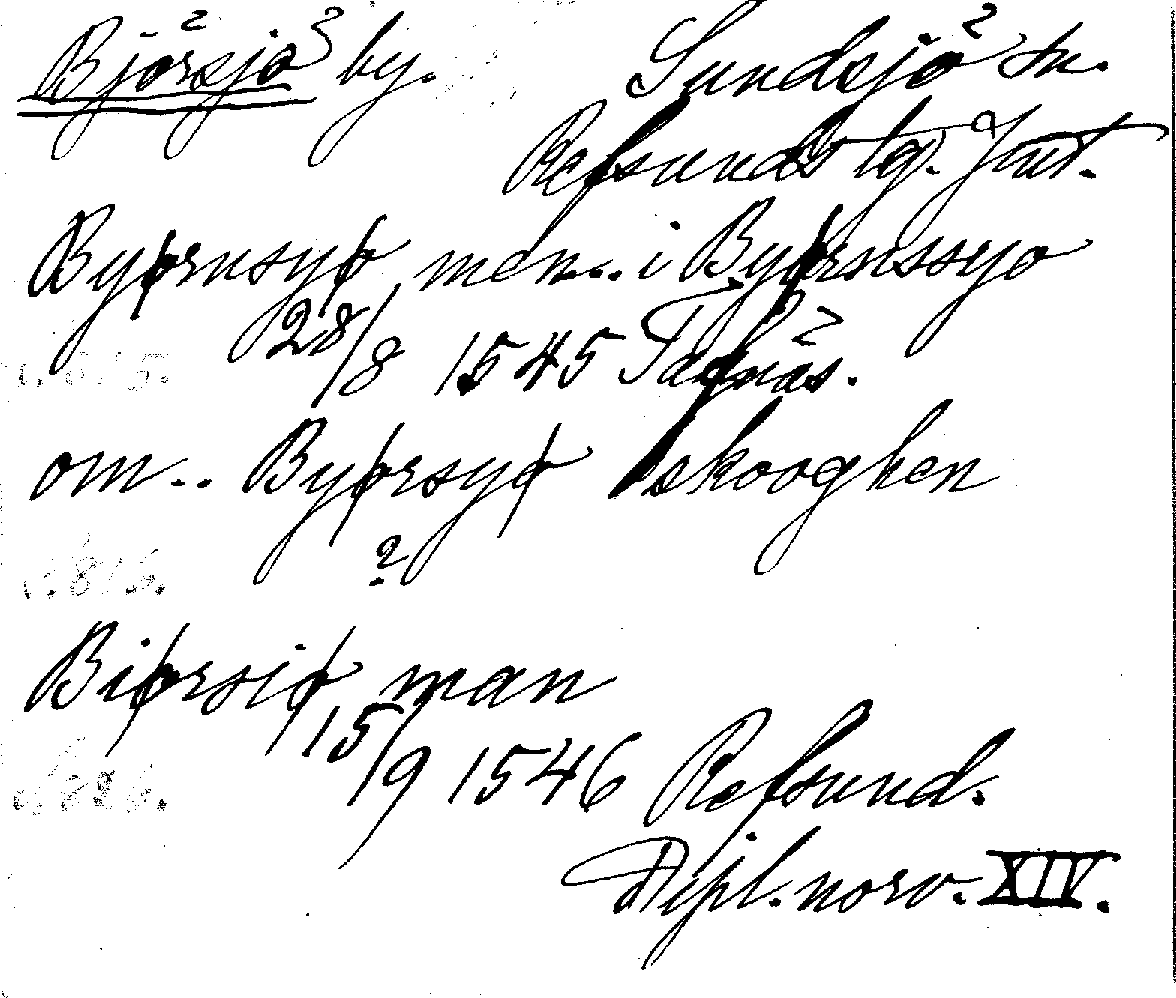 Björsjö by. Sundsjö sn.
Refsunds tg. Jmt.
Byørnsyø men... i Byørnssyo
28/8 1545
om... Byørsyø skooghen
?
Biørsiø man
15/9 1546 Refsund.
Dipl. norv. XIV.